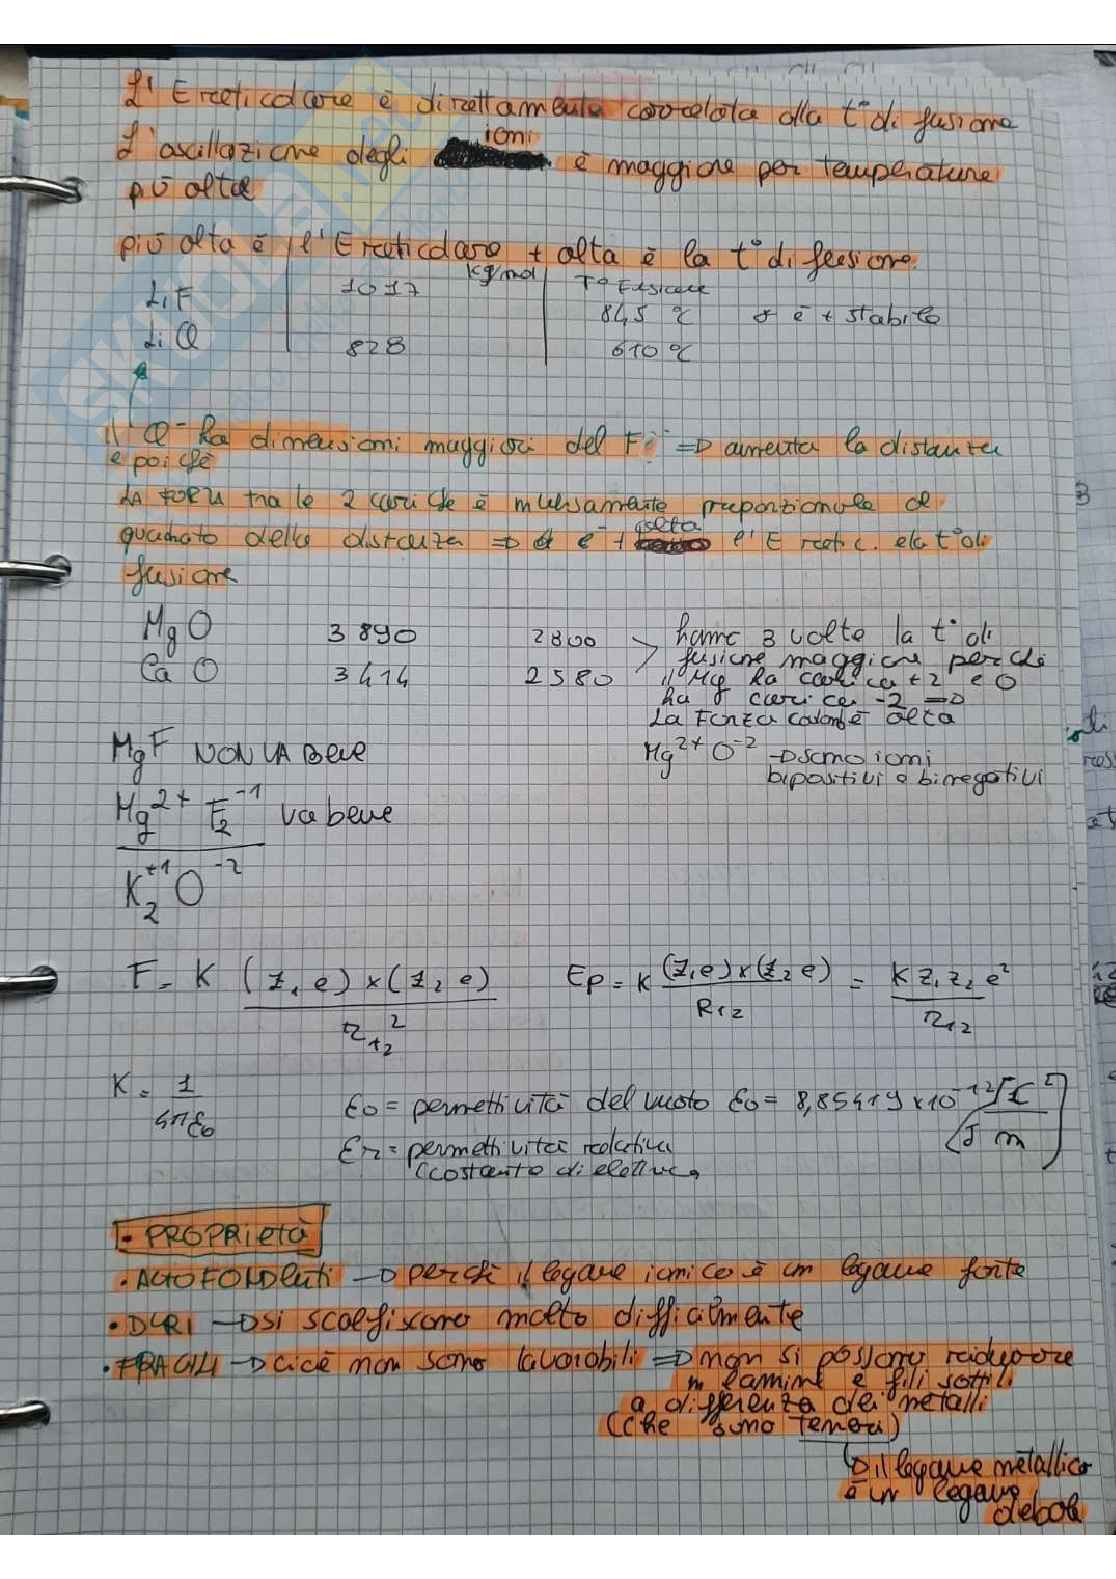 L'Ereticolare è direttamente correlata alla t° di fusione
L'oscillazione degli ioni è maggiore per temperature
più alte
più alta è l'Ereticolare + alta è la t° di fusione.
kg/mol T° Fusione
LiF 1017 845 °C è + stabile
LiCl 828 610 °C
il Cl⁻ ha dimensioni maggiori del F⁻ => aumenta la distanza
e poichè
LA FORZA tra le 2 cariche è inversamente proporzionale al
quadrato della distanza => è + alta l'E retic. e la t° di
fusione
MgO 3890 2800 hanno 3 volte la t° di
fusione maggiore perchè
CaO 3414 2580 il Mg ha carica +2 e O
ha carica -2 =>
La Forza coulomb è alta
MgF NON VA Bene Mg²⁺ O⁻² -> sono ioni
bipositivi e binegativi
Mg²⁺ F₂⁻¹ va bene
K₂⁺¹ O⁻²
F = K (z₁ e) x (z₂ e) / r₁₂² Ep = K (z₁e) x (z₂ e) / R₁₂ = K z₁ z₂ e² / r₁₂
K = 1 / 4πε₀
ε₀ = permettività del vuoto ε₀ = 8,85419 x 10⁻¹² [C² / J m]
εr = permettività relativa
(costante dielettrica)
• PROPRIETà
• ALTOFONDENTI -> perchè il legame ionico è un legame forte
• DURI -> si scalfiscono molto difficilmente
• FRAGILI -> cioè non sono lavorabili => non si possono ridurre
in lamine e fili sottili
a differenza dei metalli
(che sono teneri)
-> il legame metallico
è un legame
debole